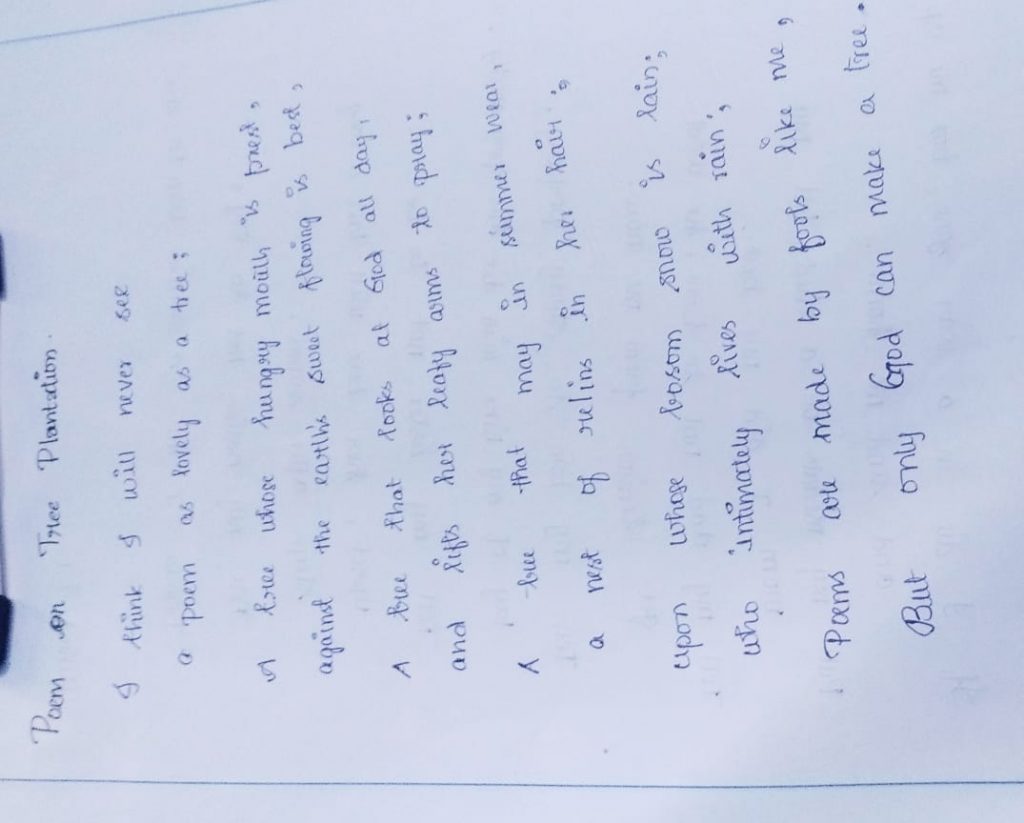 Poem on Tree Plantation.
I think I will never see
a poem as lovely as a tree;
A tree whose hungry mouth is prest,
against the earth's sweet flowing is best,
A tree that looks at God all day,
and lifts her leafy arms to pray;
A tree that may in summer wear,
a nest of relins in her hair;
upon whose bosom snow is lain;
who intimately lives with rain;
Poems are made by fools like me,
But only God can make a tree.